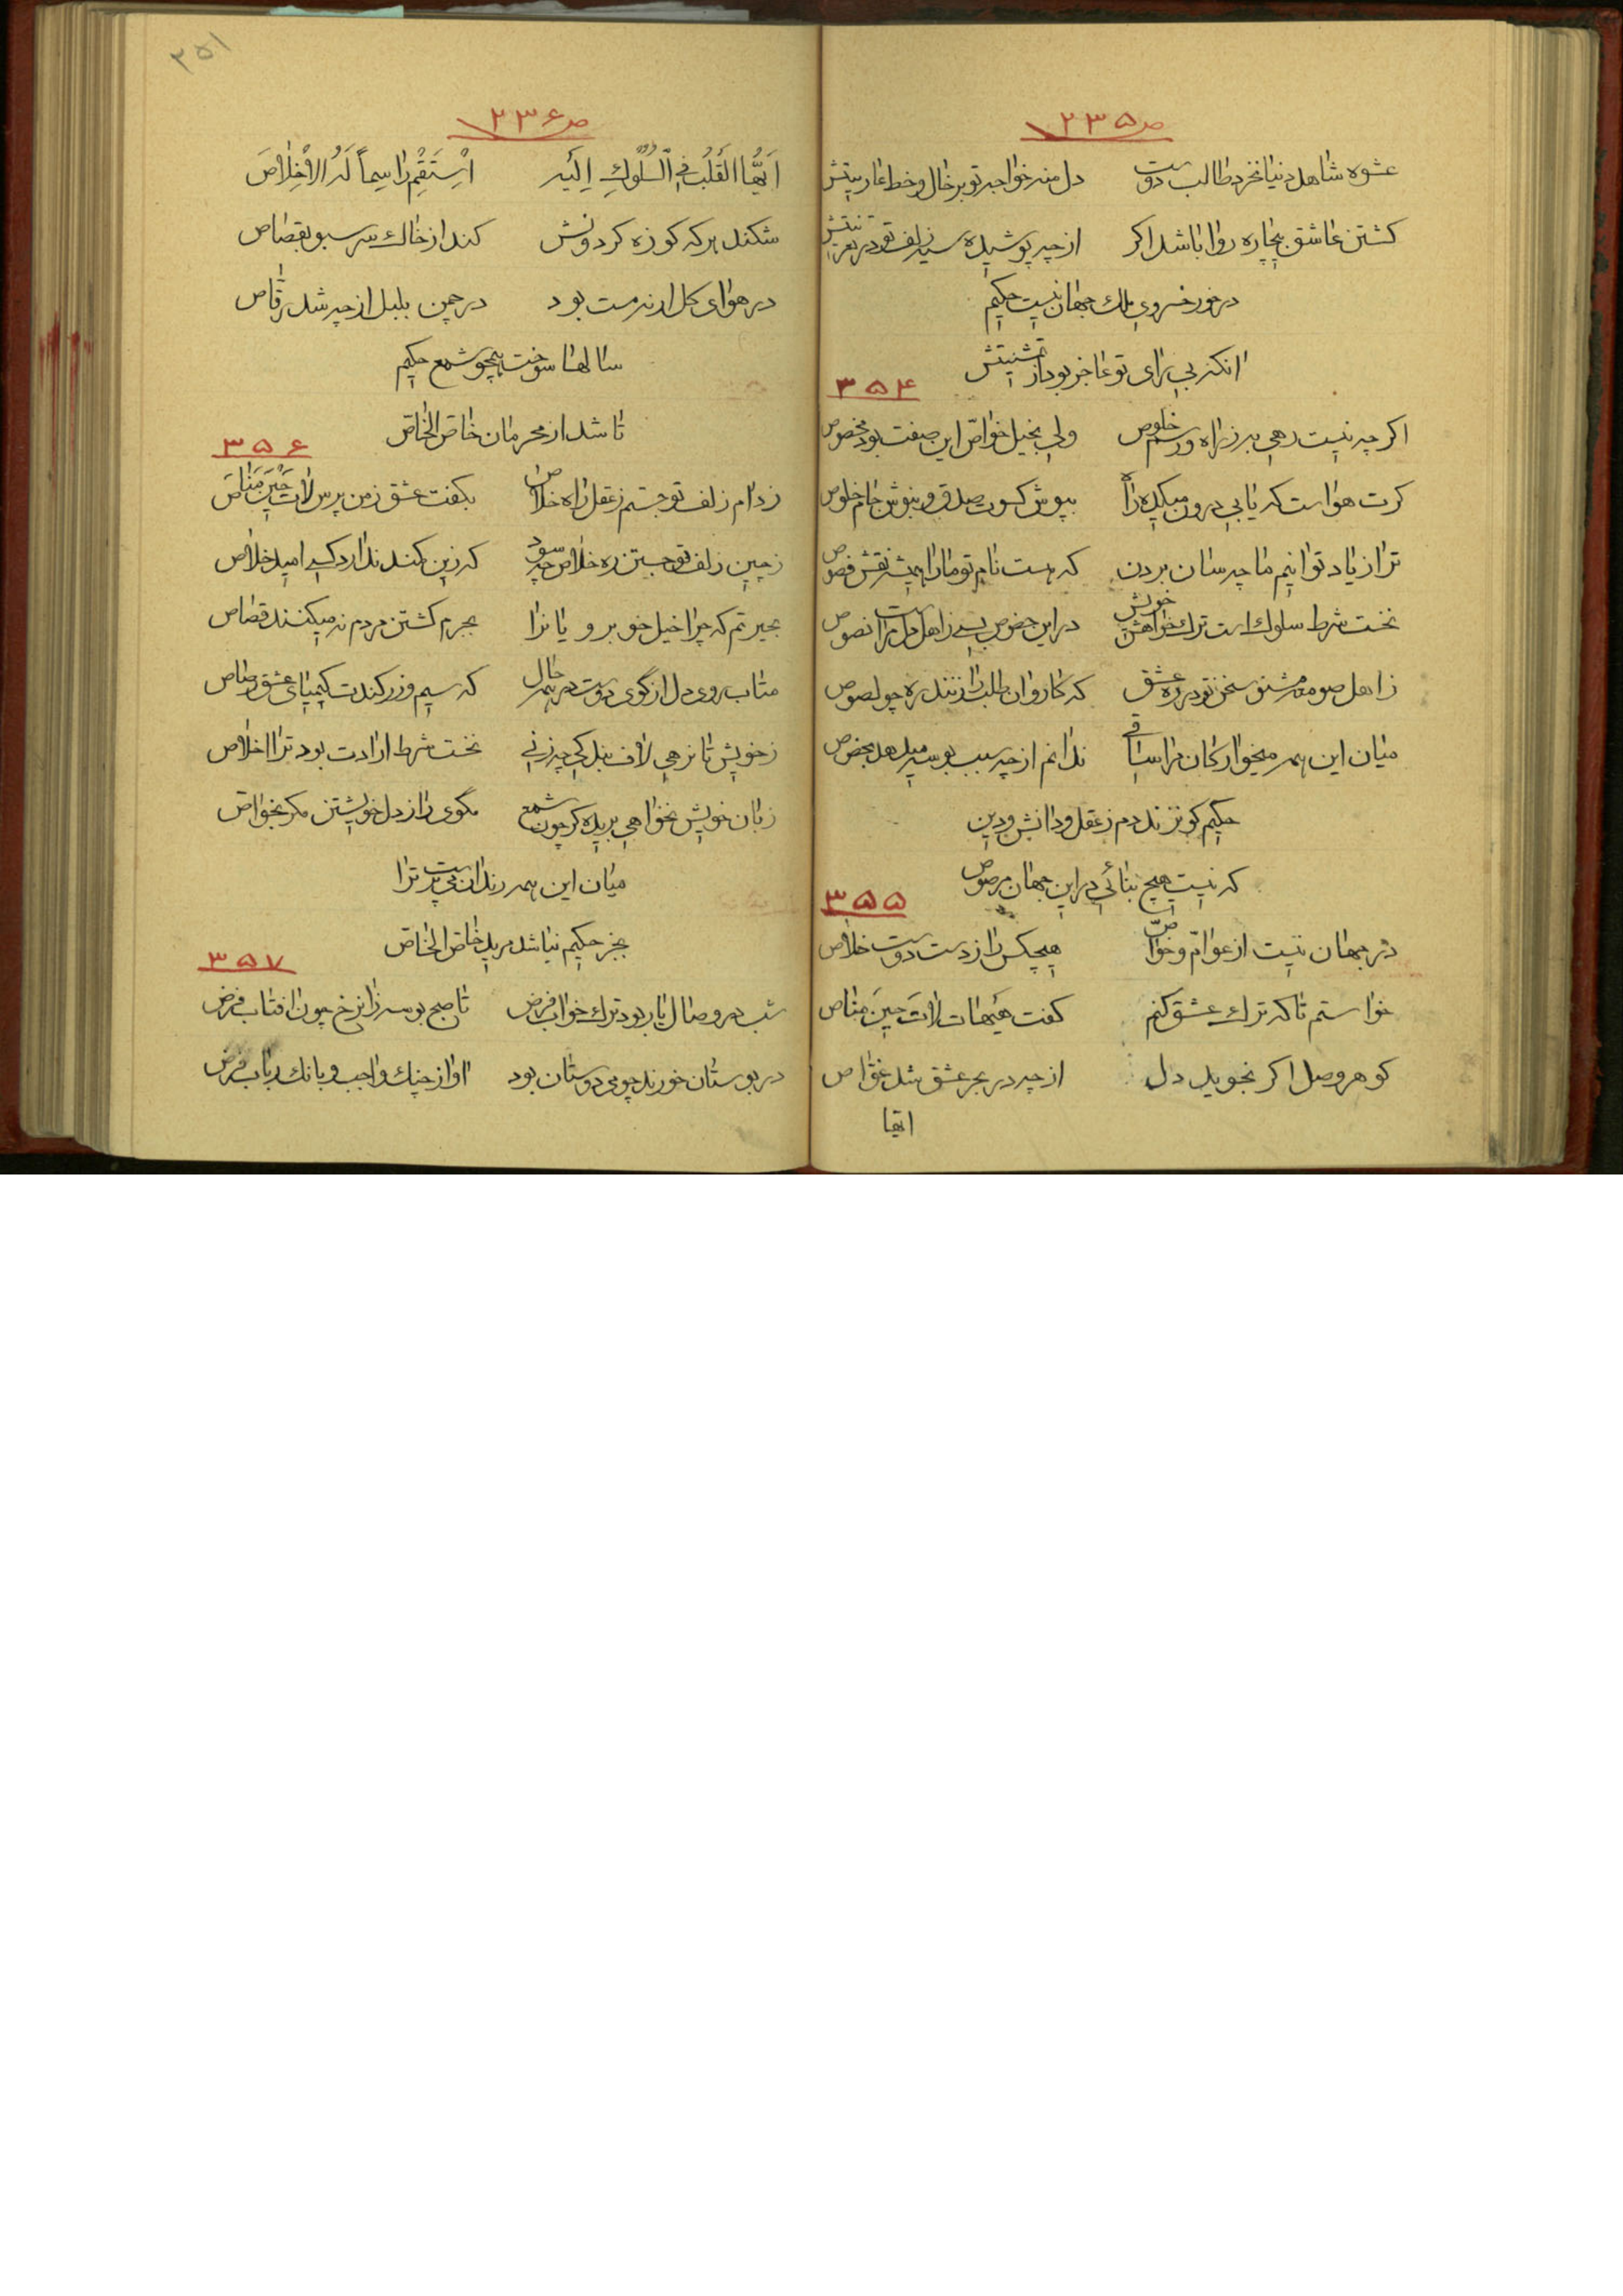 ص ۲۳۵
عشوه شاهد دنیا نخرد طالب دوست دل منه خواجه تو بر خال و خط عاریتش
کشتن عاشق بیچاره روا باشد اکر از چه پوشیده سیه زلف تو در تعزیتش
در خور خسروی ملك جهان نیست حکیم
انکه بی رای تو عاجز بود از
۳۵۴
اکر چه نیست رهی به ز راه و رسم خلوص ولی بخیل خواص این صفت بود مخصوص
کرت هواست که یابی درون میکده راه بپوش کسوت صدق و بنوش جام خلوص
ترا ز یاد توانیم ما چه سان بردن که هست نام تو ما را همیشه نقش فصوص
نخست شرط سلوك است ترك خواهش خویش در این خصوص بسی ز اهل دل مراست نصوص
ز اهل صومعه مشنو سخن تو در ره عشق که کاروان طلب را زنند ره چو لصوص
میان این همه میخوارکان مرا ساقی ندانم از چه سبب بوسه میدهد بخصوص
حکیم کو نزند دم ز عقل و دانش و دین
که نیست هیچ بنائی در این جهان مرصوص
۳۵۵
در جهان نیست از عوام و خواص هیچکس را ز دست دوست خلاص
خواستم تا که ترك عشق کنم کفت هیهات لات حین مناص
کوهر وصل اکر نجوید دل از چه در بحر عشق شد غواص
ایها
۲۵۱
ص ۲۳۶
اَیُّهَا القَلْبُ فِي السُّلُوكِ اِلَیْه اِسْتَقِمْ رٰاسِماً لَهُ الاِخْلٰاصَ
شکند هر که کوزه کردونش کند از خاك سر سبو بقصاص
در هوای کل ار نه مست بود در چمن بلبل از چه شد رقّاص
سالها سوخت همچو شمع حکیم
تا شد از محرمان خاص الخاص
۳۵۶
ز دام زلف تو جستم ز عقل راه خلاص بکفت عشق ز من پرس لاتَ حینَ مَناص
ز چین زلف تو جستن ره خلاص چه سود که زین کمند ندارد کسی امید خلاص
بحیرتم که چرا خیل خوبرویانرا بجرم کشتن مردم نه میکنند قصاص
متاب روی دل از کوی دوست در همه حال که سیم و زر کندت کیمیای عشق رصاص
ز خویش تا نرهی لاف بندکی چه زنی نخست شرط ارادت بود ترا اخلاص
زبان خویش نخواهی بریده کر چون شمع مکوی راز دل خویشتن مکر بخواص
میان این همه رندان می پرست ترا
بجز حکیم نباشد مرید خاص الخاص
۳۵۷
شب در وصال یار بود ترك خواب فرض تا صبح بوسه زان رخ چون افتاب فرض
در بوستان خورند چو می دوستان بود اواز چنك واجب و بانك رباب فرض